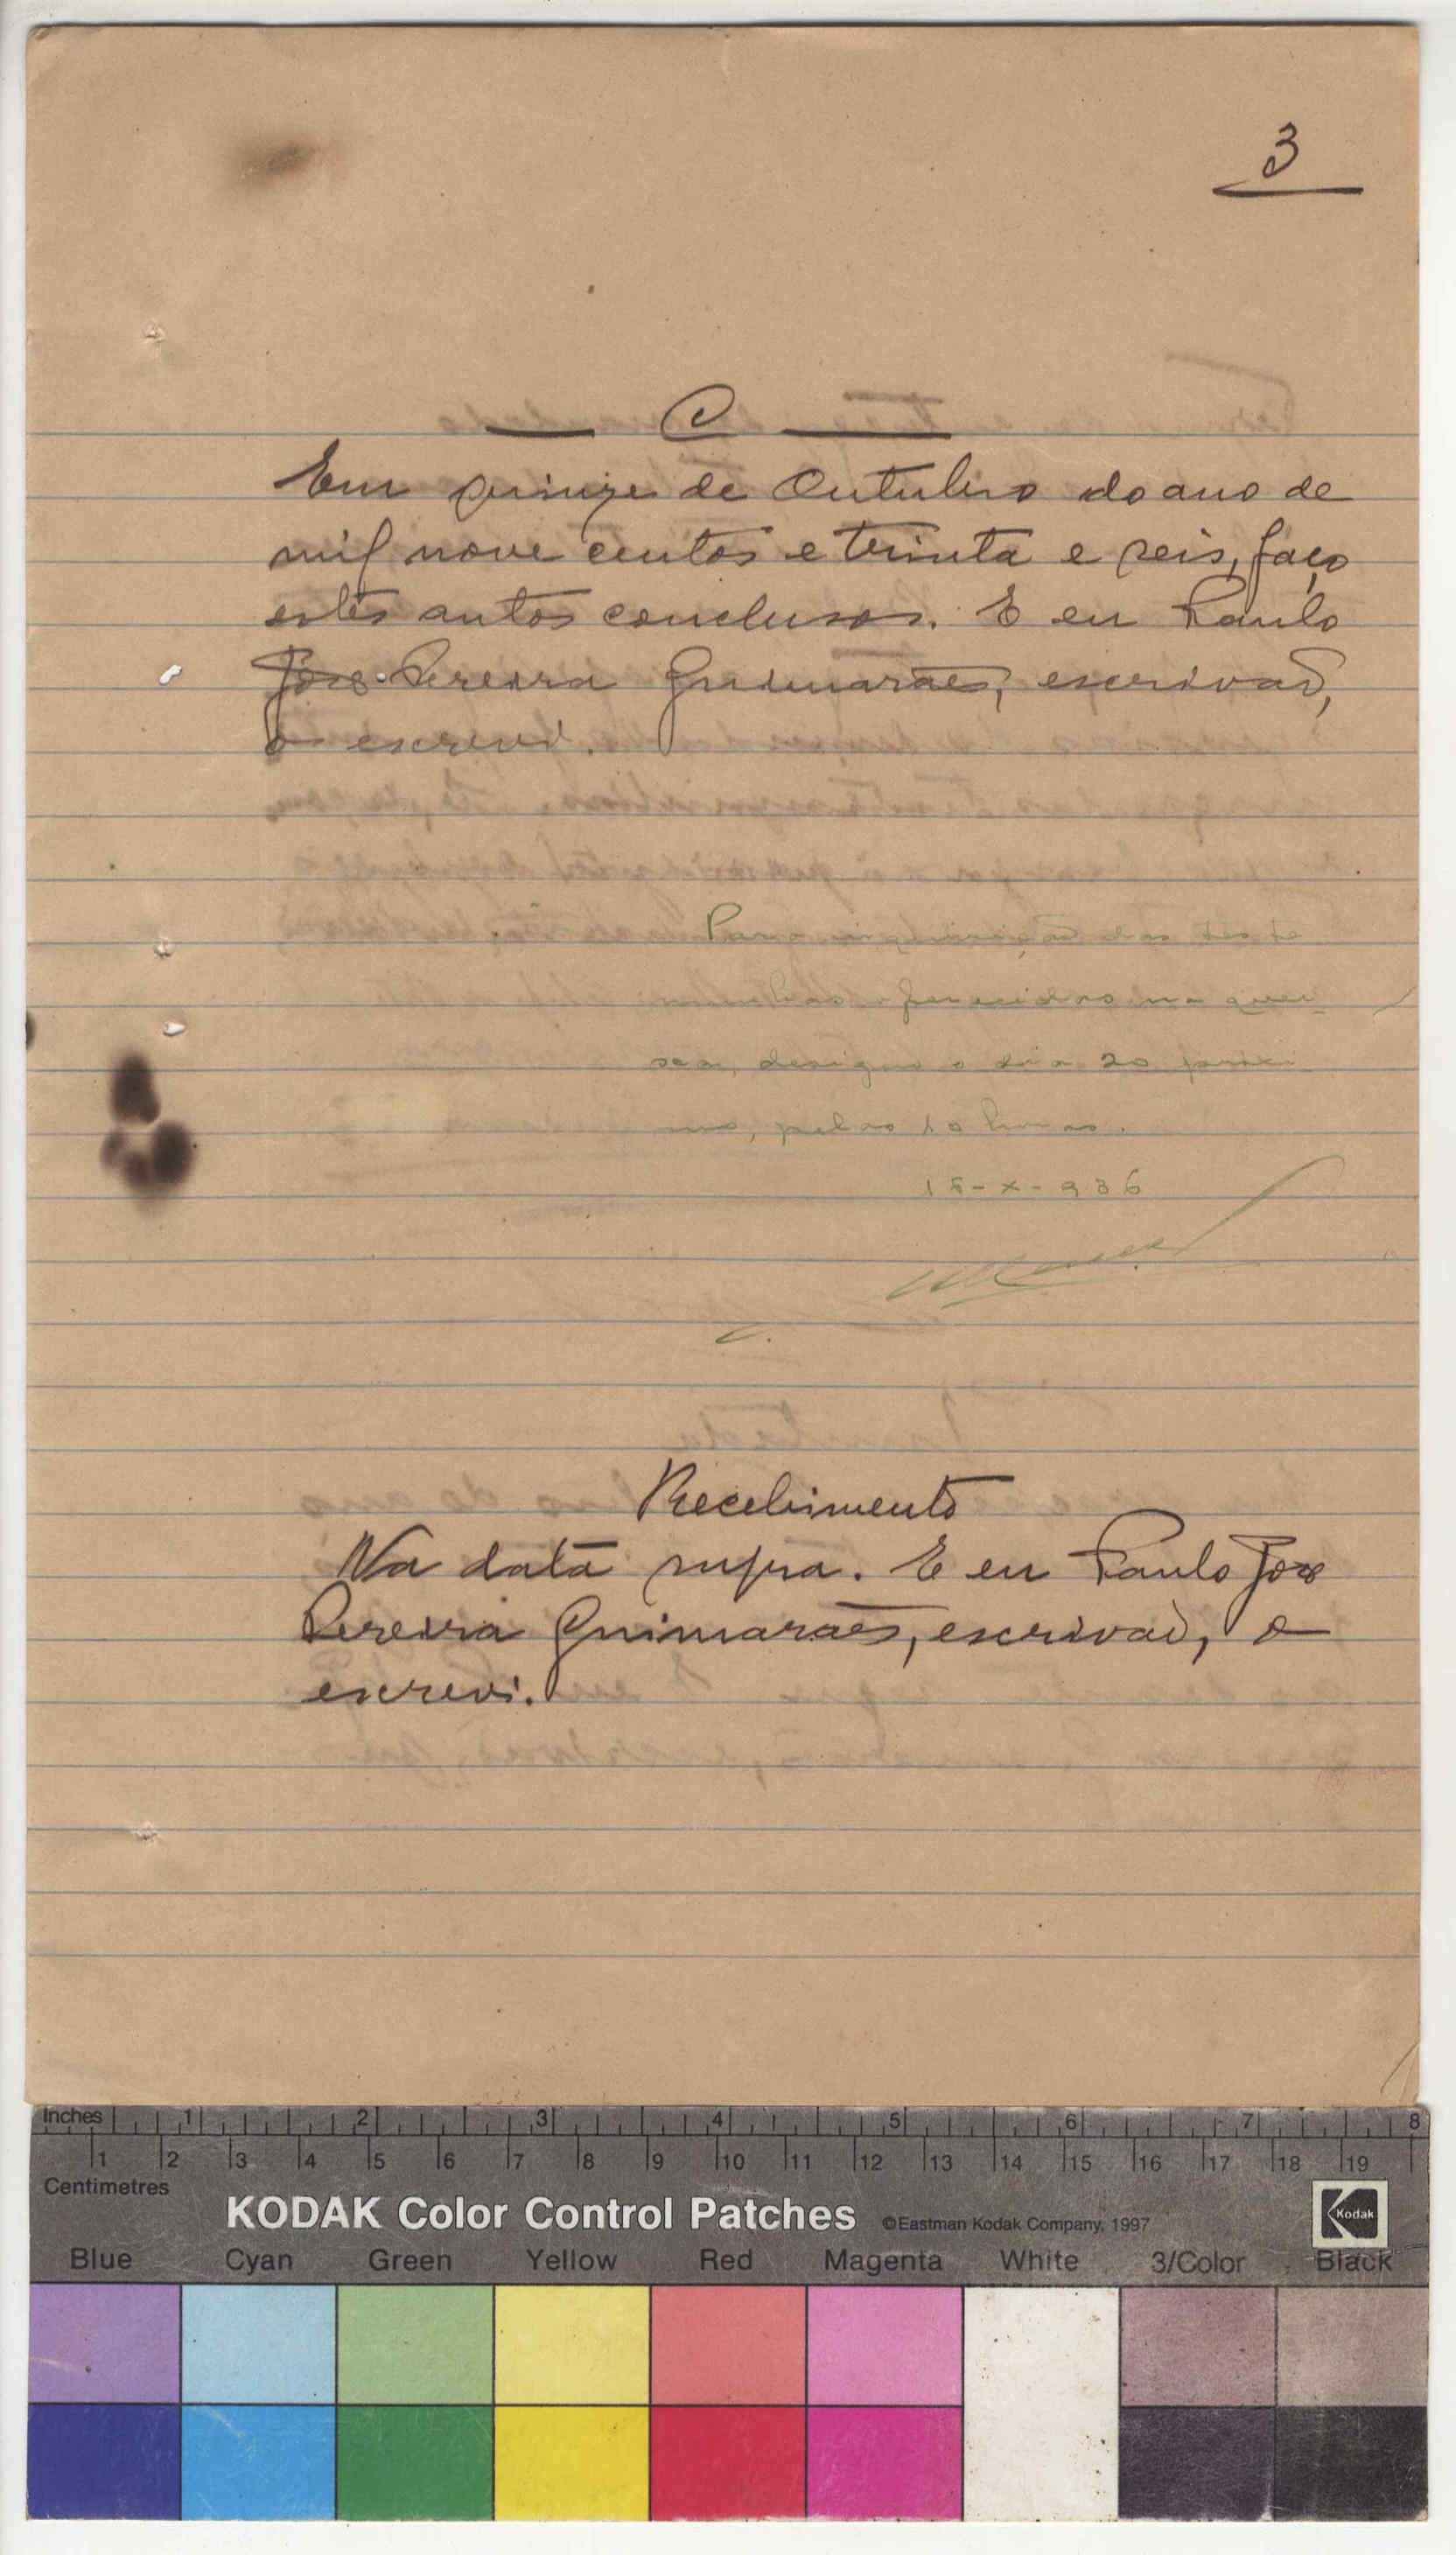 3
C
Em quinze de Outubro do ano de
mil nove centos e trinta e seis, faço
estes autos conclusos. E eu Paulo
José Pereira Guimarães, escrivão,
o escrevi.
Para inquirição das teste
munhas offerecidas na quei-
xa, designo o dia 20 proxi
mo, pelas 10 horas.
15-X-936
Recebimento
Na data supra. E eu Paulo José
Pereira Guimarães, escrivão, o
escrevi.
Inches 1 2 3 4 5 6 7 8
1 2 3 4 5 6 7 8 9 10 11 12 13 14 15 16 17 18 19
Centimetres
KODAK Color Control Patches ©Eastman Kodak Company, 1997 Kodak
Blue Cyan Green Yellow Red Magenta White 3/Color Black